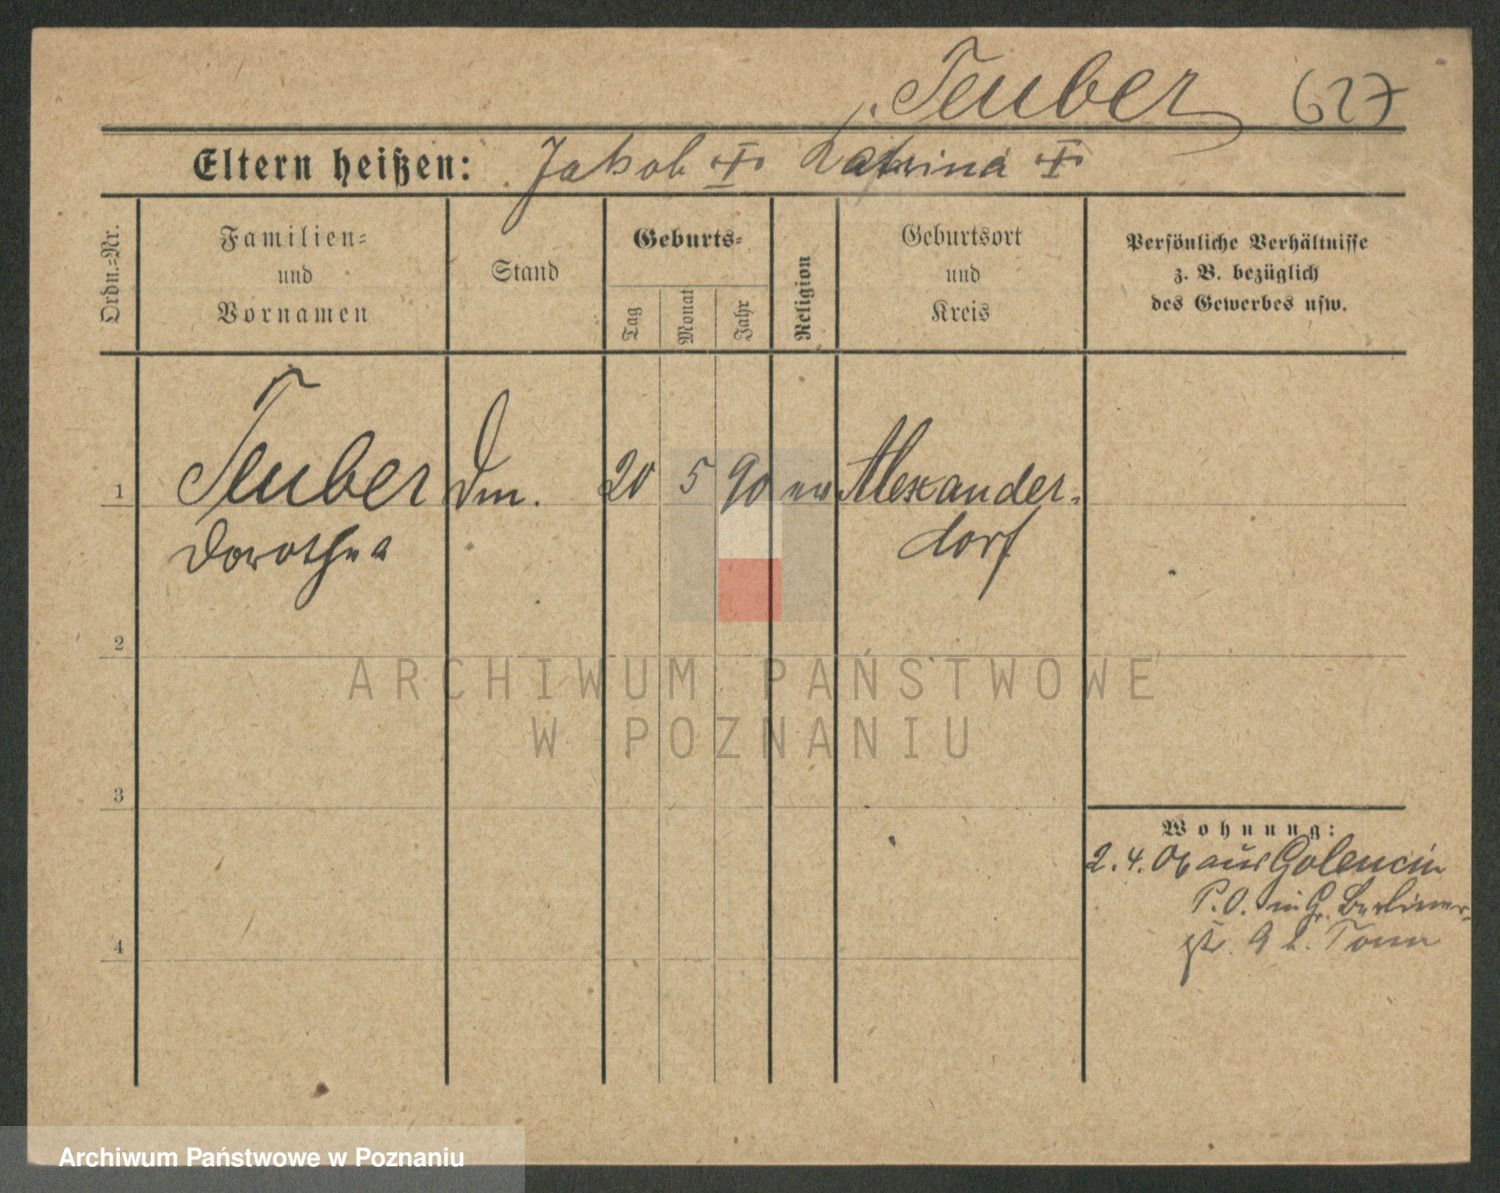 Teuber 627
Eltern heißen: Jakob Katrina
Ordn.-Nr.
Familien-
und
Vornamen
Stand
Geburts-
Tag
Monat
Jahr
Religion
Geburtsort
und
Kreis
Persönliche Verhältnisse
z. B. bezüglich
des Gewerbes usw.
1 Teuber Dm. 20 5 90 ev Alexander-
Dorothea dorf
2
ARCHIWUM PAŃSTWOWE
W POZNANIU
3
Wohnung:
2. 4. 06 aus Golencin
P. O. in Gr. Berliner-
str. 9
4
Archiwum Państwowe w Poznaniu